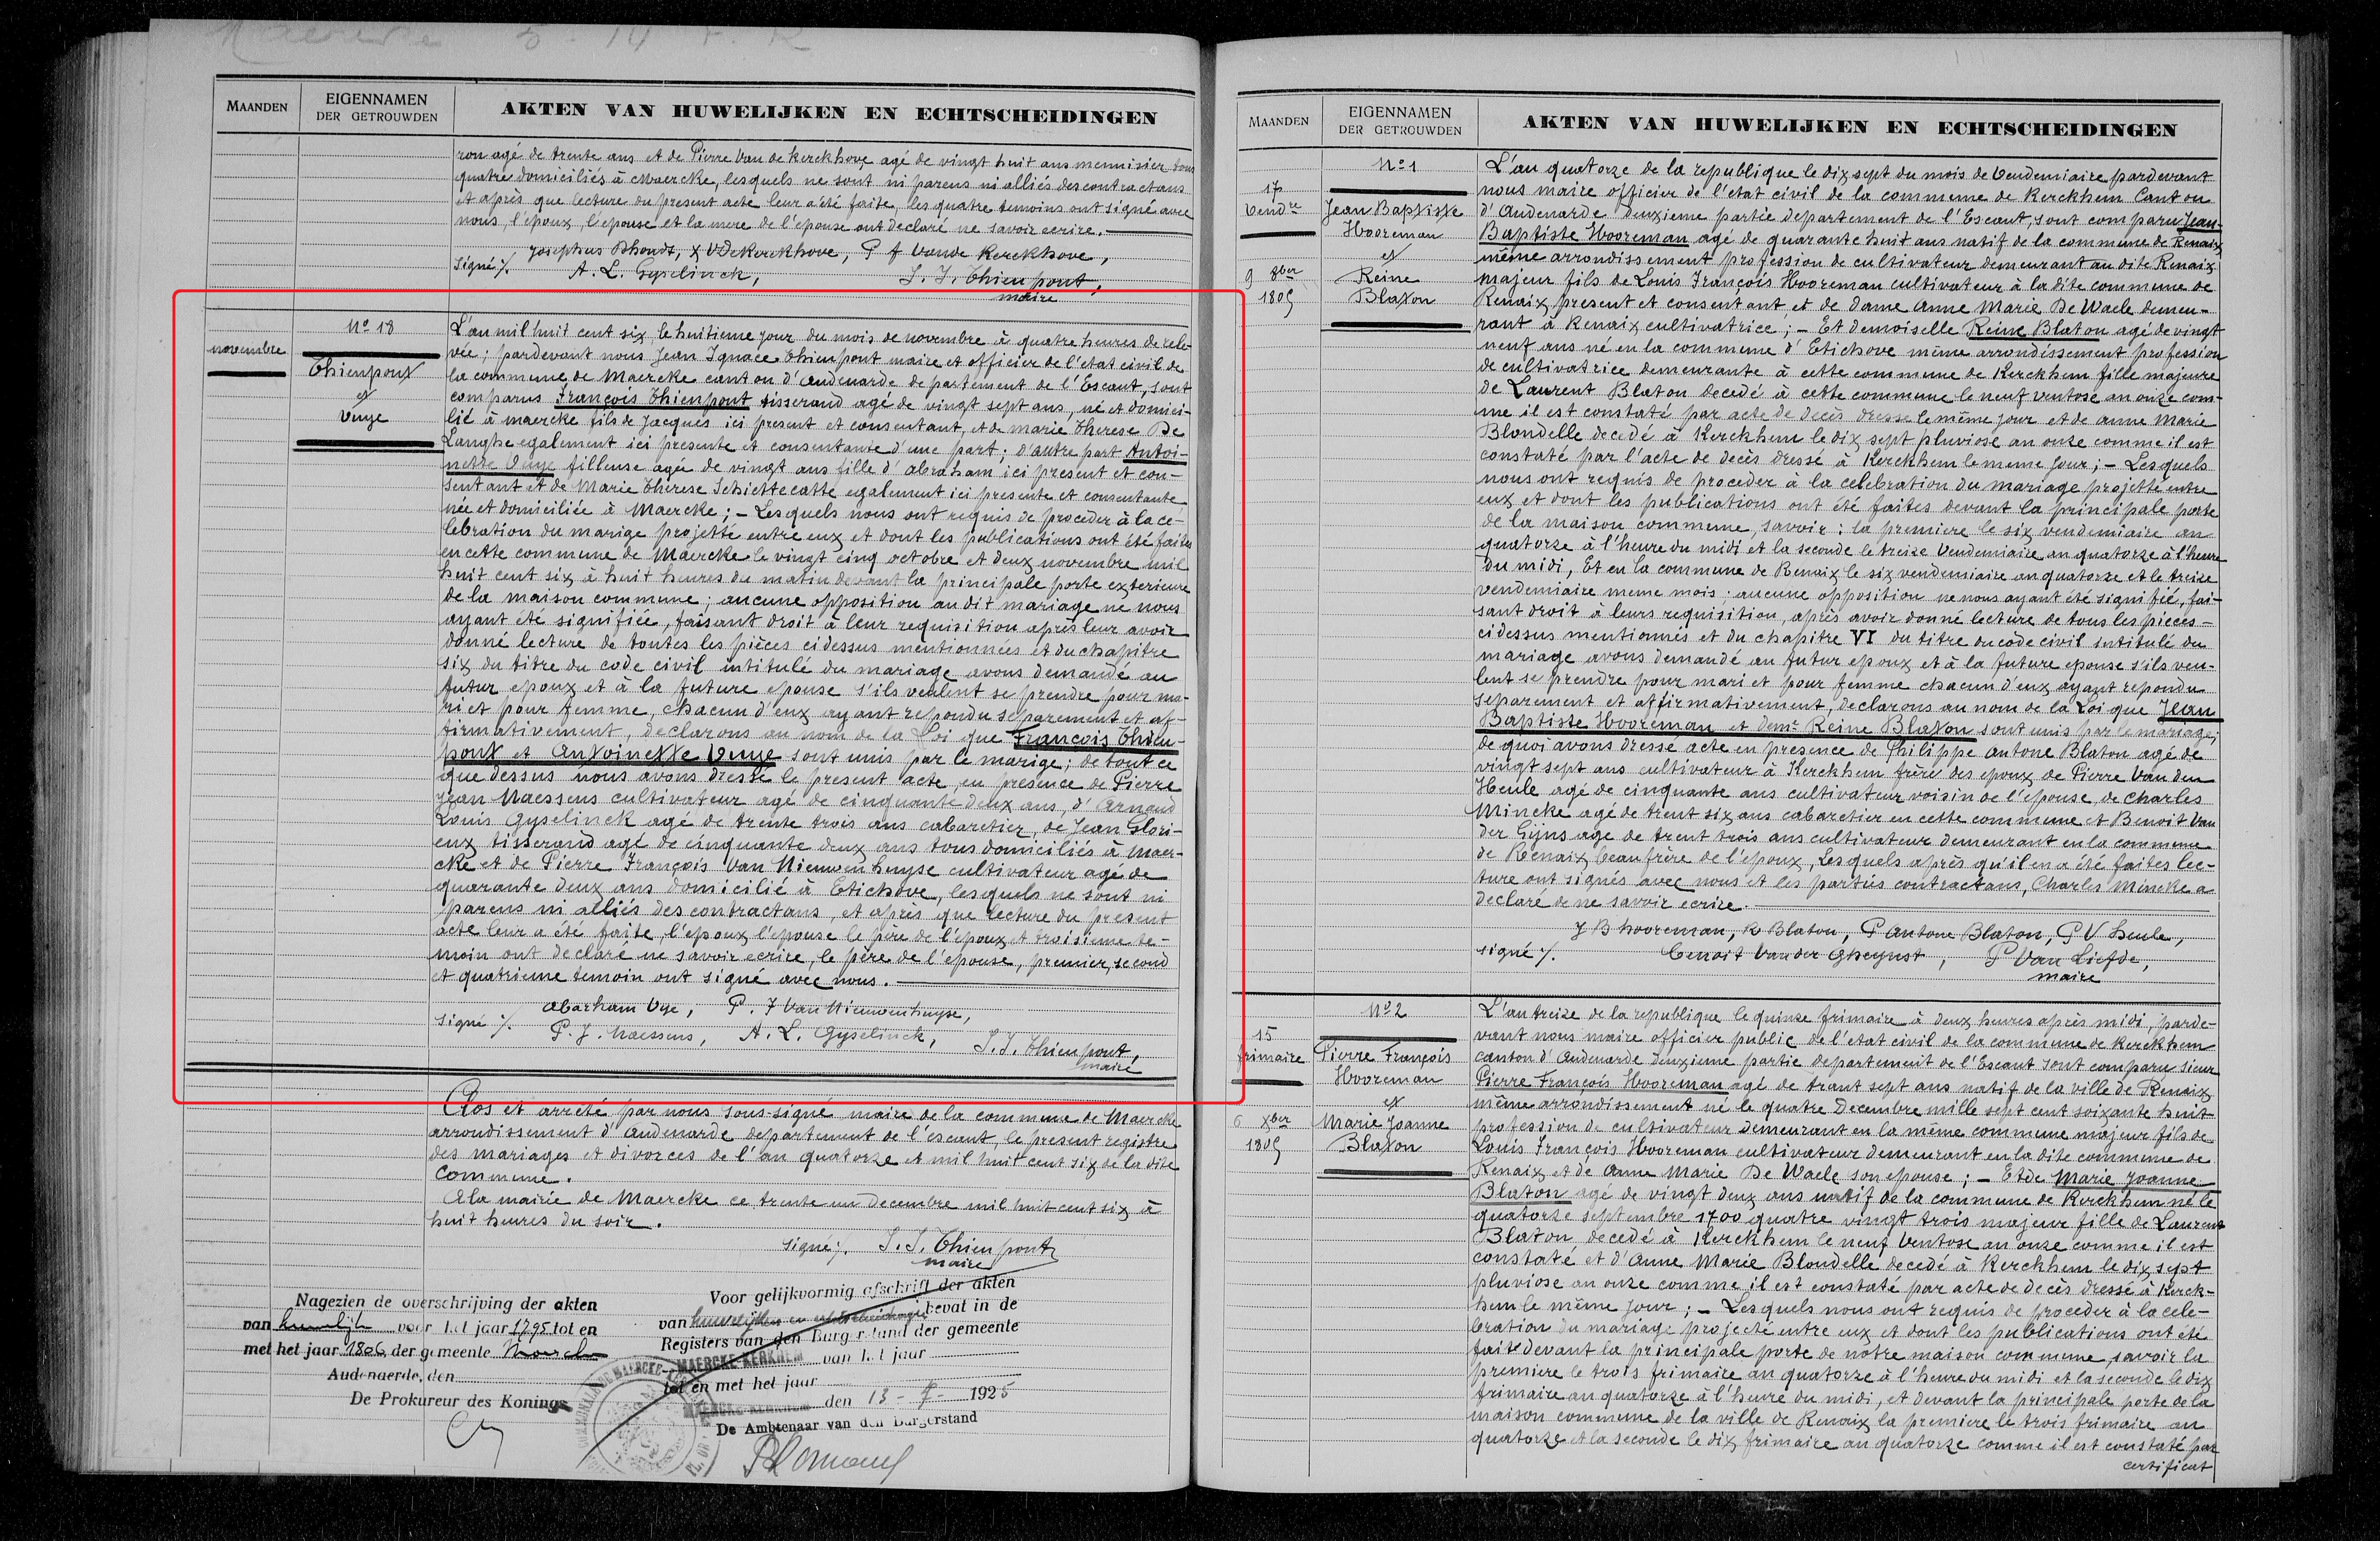 MAANDEN
EIGENNAMEN
DER GETROUWDEN
AKTEN VAN HUWELIJKEN EN ECHTSCHEIDINGEN
ron agé de trente ans et de Pierre Van de Kerckhove agé de vingt huit ans mennisier tous
quatre domiciliés à Maercke, lesquels ne sont ni parens ni alliés des contractans
et après que lecture du present acte leur a été faite, les quatre temoins ont signé avec
nous, l'epoux, l'epouse et la mere de l'epouse ont declaré ne savoir ecrire.
Josephus Dhondt, X VDeKerckhove, P f Vande Kerckhove,
signé %. A. L. Gyselinck, J. J. Thienpont,
maire
No 18
novembre
Thienpont
et
Vuye
L'an mil huit cent six, le huitieme jour du mois de novembre à quatre heures de rele-
vée; pardevant nous Jean Ignace Thienpont maire et officier de l'etat civil de
la commune de Maercke canton d'Audenarde departement de l'Escaut, sont
comparus François Thienpont tisserand agé de vingt sept ans, né et domici-
lié à maercke fils de Jacques ici present et consentant, et de marie Therese De
Langhe egalement ici presente et consentante d'une part; d'autre part Antoi-
nette Vuye filleuse agé de vingt ans fille d'abraham ici present et con-
sentant et de Marie Therese Schiettecatte egalement ici presente et consentante
née et domiciliée à Maercke; – Lesquels nous ont requis de proceder à la cé-
lebration du marige projetté entre eux et dont les publications ont été faites
en cette commune de Maercke le vingt cinq octobre et deux novembre mil
huit cent six à huit heures du matin devant la principale porte exterieure
de la maison commune; aucune opposition au dit mariage ne nous
ayant été signifiée, faisant droit à leur requisition après leur avoir
donné lecture de toutes les pièces cidessus mentionnées et du chapitre
six du titre du code civil intitulé du mariage avons demandé au
futur epoux et à la future epouse s'ils veulent se prendre pour ma-
ri et pour femme, chacun d'eux ayant repondu separement et af-
firmativement, declarons au nom de la Loi que François Thien-
pont et Antoinette Vuye sont unis par le marige; de tout ce
que dessus nous avons dressé le present acte, en presence de Pierre
Jean Maessens cultivateur agé de cinquante deux ans, d'Arnaud
Louis Gyselinck agé de trente trois ans cabaretier, de Jean Glori-
eux tisserand agé de cinquante deux ans tous domiciliés à Maer-
cke et de Pierre François Van Nieuwenhuyse cultivateur agé de
quarante deux ans domicilié à Etichove, lesquels ne sont ni
parens ni alliés des contractans, et après que lecture du present
acte leur a été faite, l'epoux, l'epouse le père de l'epoux et troisieme te-
moin ont declaré ne savoir ecrire, le père de l'epouse, premier, second
et quatrieme temoin ont signé avec nous.
Abarham Vye, P. F Van Nieuwenhuyse,
signé %. P. J. Maessens, A. L. Gyselinck, J. J. Thienpont,
maire
Clos et arrêté par nous sous-signé maire de la commune de Maercke
arrondissement d'Audenarde departement de l'escaut, le present registre
des mariages et divorces de l'an quatorze et mil huit cent six de la dite
commune.
A la mairie de Maercke ce trente un decembre mil huit cent six à
huit heures du soir.
signé %. J. J. Thienpont
maire
Nagezien de overschrijving der akten
van huwelijk voor het jaar 1795 tot en
met het jaar 1806 der gemeente
Audenaerde, den
De Prokureur des Konings
Voor gelijkvormig afschrift der akten
van huwelijken en echtscheidingen bevat in de
Registers van den Burgerstand der gemeente
MAERCKE-KERKHEM van het jaar
tot en met het jaar
MAERCKE-KERKHEM den 13 - 1925
De Ambtenaar van den Burgerstand
MAANDEN
EIGENNAMEN
DER GETROUWDEN
AKTEN VAN HUWELIJKEN EN ECHTSCHEIDINGEN
No 1
17
Vendre
Jean Baptiste
Hooreman
et
Reine
Blaton
9 8ber
1805
L'an quatorze de la republique le dix sept du mois de Vendemiaire pardevant
nous maire officier de l'etat civil de la commune de Kerckhem Canton
d'Audenarde deuxieme partie departement de l'Escaut, sont comparu Jean
Baptiste Hooreman agé de quarante huit ans natif de la commune de Renaix
même arrondissement profession de cultivateur demeurant au dite Renaix
majeur fils de Louis François Hooreman cultivateur à la dite commune de
Renaix present et consentant, et de dame Anne Marie De Waele demeu-
rant à Renaix cultivatrice; – Et demoiselle Reine Blaton agé de vingt
neuf ans né en la commune d'Etichove même arrondissement profession
de cultivatrice demeurante à cette commune de Kerckhem fille majeure
de Laurent Blaton decedé à cette commune le neuf ventose an onze com-
me il est constaté par acte de decès dresse le même jour et de anne Marie
Blondelle decedé à Kerckhem le dix sept pluviose an onze comme il est
constaté par l'acte de decès dressé à Kerckhem le meme jour; – Lesquels
nous ont requis de proceder à la celebration du mariage projetté entre
eux et dont les publications ont été faites devant la principale porte
de la maison commune, savoir: la premiere le six vendemiaire an
quatorze à l'heure du midi et la seconde le treize Vendemiaire an quatorze à l'heure
du midi, Et en la commune de Renaix le six vendemiaire an quatorze et le treize
vendemiaire meme mois. aucune opposition ne nous ayant été signifié, fai-
sant droit à leurs requisition, après avoir donné lecture de tous les pièces
cidessus mentionnés et du chapitre VI du titre du code civil intitulé du
mariage avons demandé au futur epoux et à la future epouse s'ils veu-
lent se prendre pour mari et pour femme chacun d'eux ayant repondu
separement et affirmativement, declarons au nom de la Loi que Jean
Baptiste Hooreman et demle Reine Blaton sont unis par le mariage;
de quoi avons dressé acte en presence de Philippe antone Blaton agé de
vingt sept ans cultivateur à Kerckhem frère des epoux de Pierre Van den
Heule agé de cinquante ans cultivateur voisin de l'epouse, de Charles
Mincke agé de trent six ans cabaretier en cette commune et Benoit Van
der Gijns age de trent trois ans cultivateur demeurant en la commune
de Renaix beaufrère de l'epoux, Lesquels après qu'il en a été faites lec-
ture ont signés avec nous et les parties contractans, Charles Mincke a
declaré de ne savoir ecrire.
J B hooreman, R Blaton, P antone Blaton, P V heule,
signé %. Benoit Vander Gheynst, P Van Liefde,
maire
No 2
15
frimaire
Pierre François
Hooreman
et
Marie Joanne
Blaton
6 Xber
1805
L'an treize de la republique le quinze frimaire à deux heures après midi, parde-
vant nous maire officier public de l'etat civil de la commune de Kerckhem
canton d'Audenarde deuxieme partie departement de l'Escaut sont comparu sieur
Pierre François Hooreman agé de trant sept ans natif de la ville de Renaix
même arrondissement né le quatre Decembre mille sept cent soixante huit
profession de cultivateur demeurant en la même commune majeur fils de
Louis François Hooreman cultivateur demeurant en la dite commune de
Renaix et de Anne Marie De Waele son epouse; – Et de Marie Joanne
Blaton agé de vingt deux ans natif de la commune de Kerckhem né le
quatorze septembre 1700 quatre vingt trois majeur fille de Laurent
Blaton decedé à Kerckhem le neuf Ventose an onze comme il est
constaté et d'Anne Marie Blondelle decedé à Kerckhem le dix sept
pluviose an onze comme il est constaté par acte de decès dressé à Kerck-
hem le même jour; – Lesquels nous ont requis de proceder à la cele-
bration du mariage projecté entre eux et dont les publications ont été
faite devant la principale porte de nôtre maison commune, savoir la
premiere le trois frimaire an quatorze à l'heure du midi et la seconde le dix
frimaire an quatorze à l'heure du midi, et devant la principale porte de la
maison commune de la ville de Renaix la premiere le trois frimaire an
quatorze et la seconde le dix frimaire an quatorze comme il est constaté par
certificat